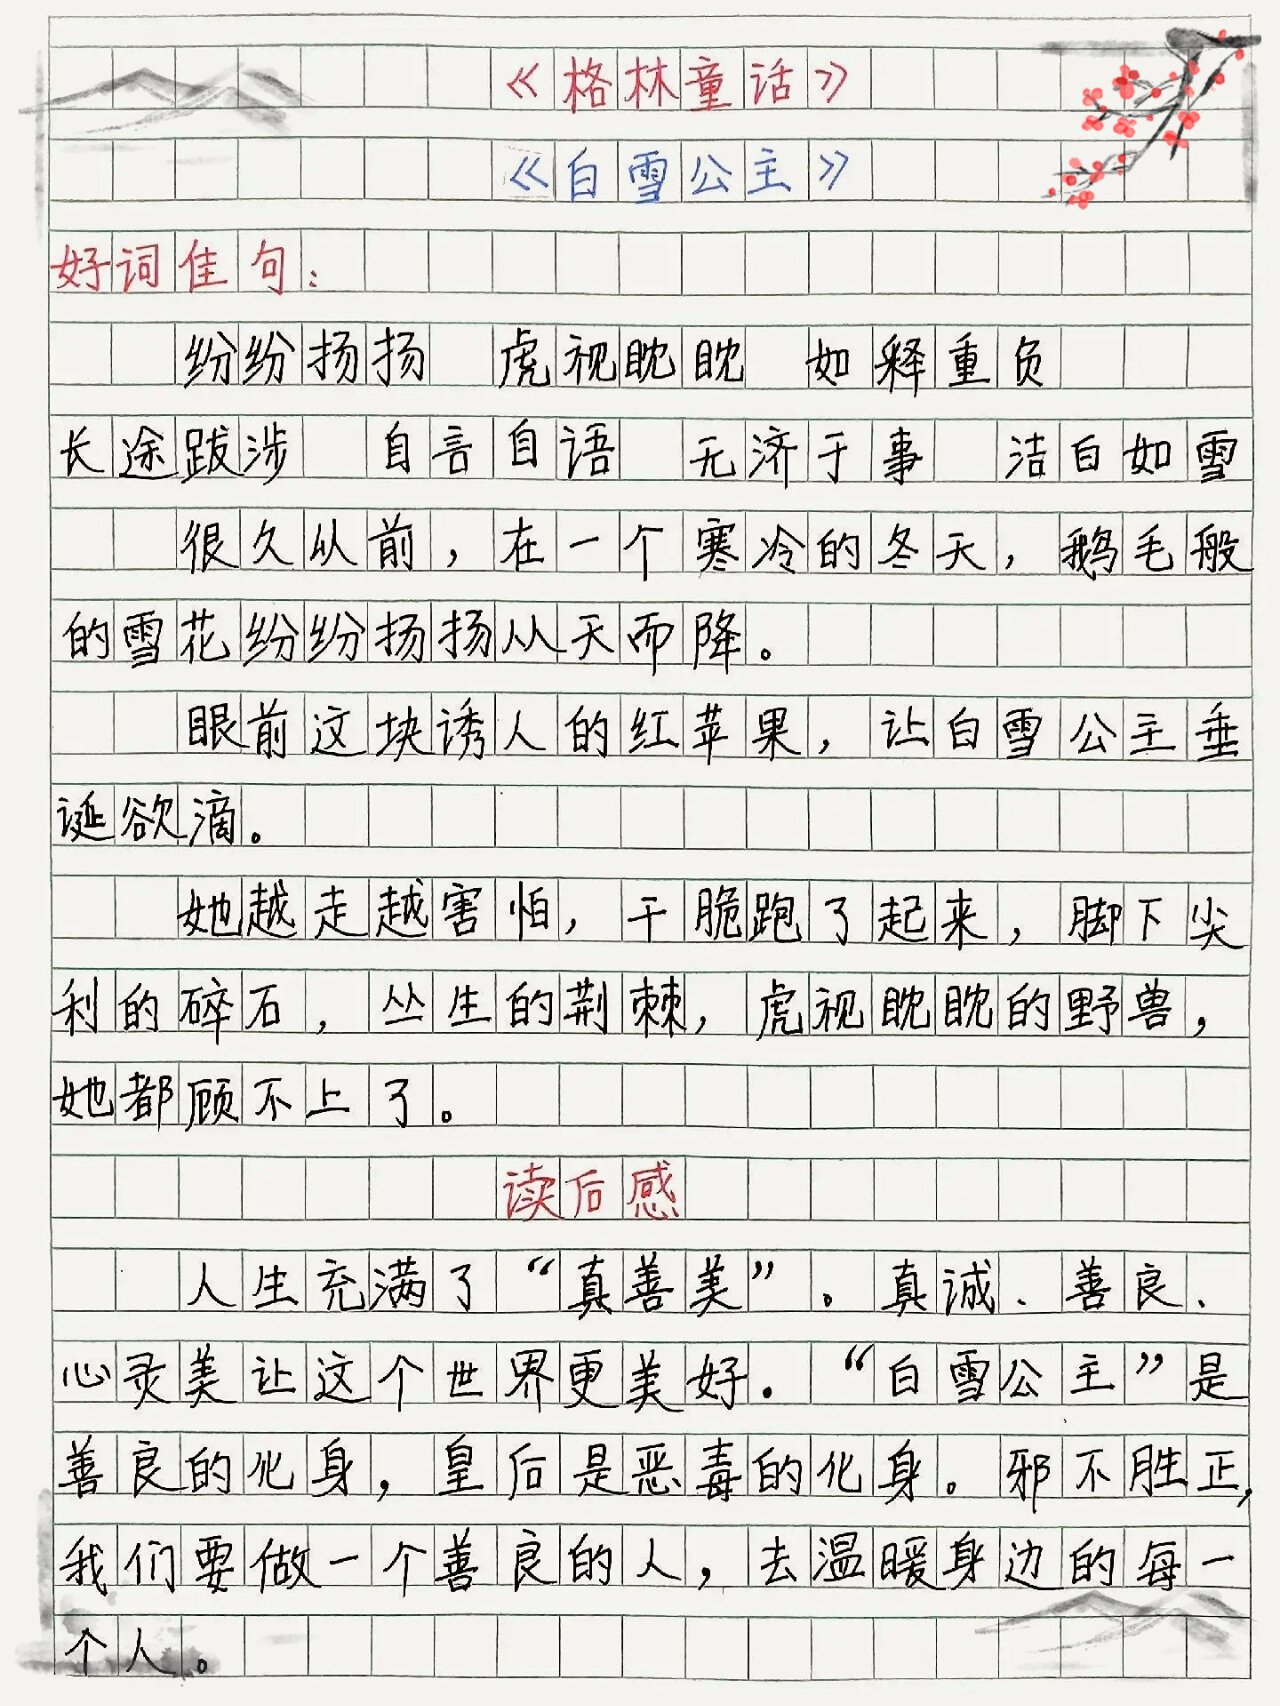 《格林童话》
《白雪公主》
好词佳句：
纷纷扬扬 虎视眈眈 如释重负
长途跋涉 自言自语 无济于事 洁白如雪
很久从前，在一个寒冷的冬天，鹅毛般
的雪花纷纷扬扬从天而降。
眼前这块诱人的红苹果，让白雪公主垂
诞欲滴。
她越走越害怕，干脆跑了起来，脚下尖
利的碎石，丛生的荆棘，虎视眈眈的野兽，
她都顾不上了。
读后感
人生充满了“真善美”。真诚、善良、
心灵美让这个世界更美好.“白雪公主”是
善良的化身，皇后是恶毒的化身。邪不胜正，
我们要做一个善良的人，去温暖身边的每一
个人。